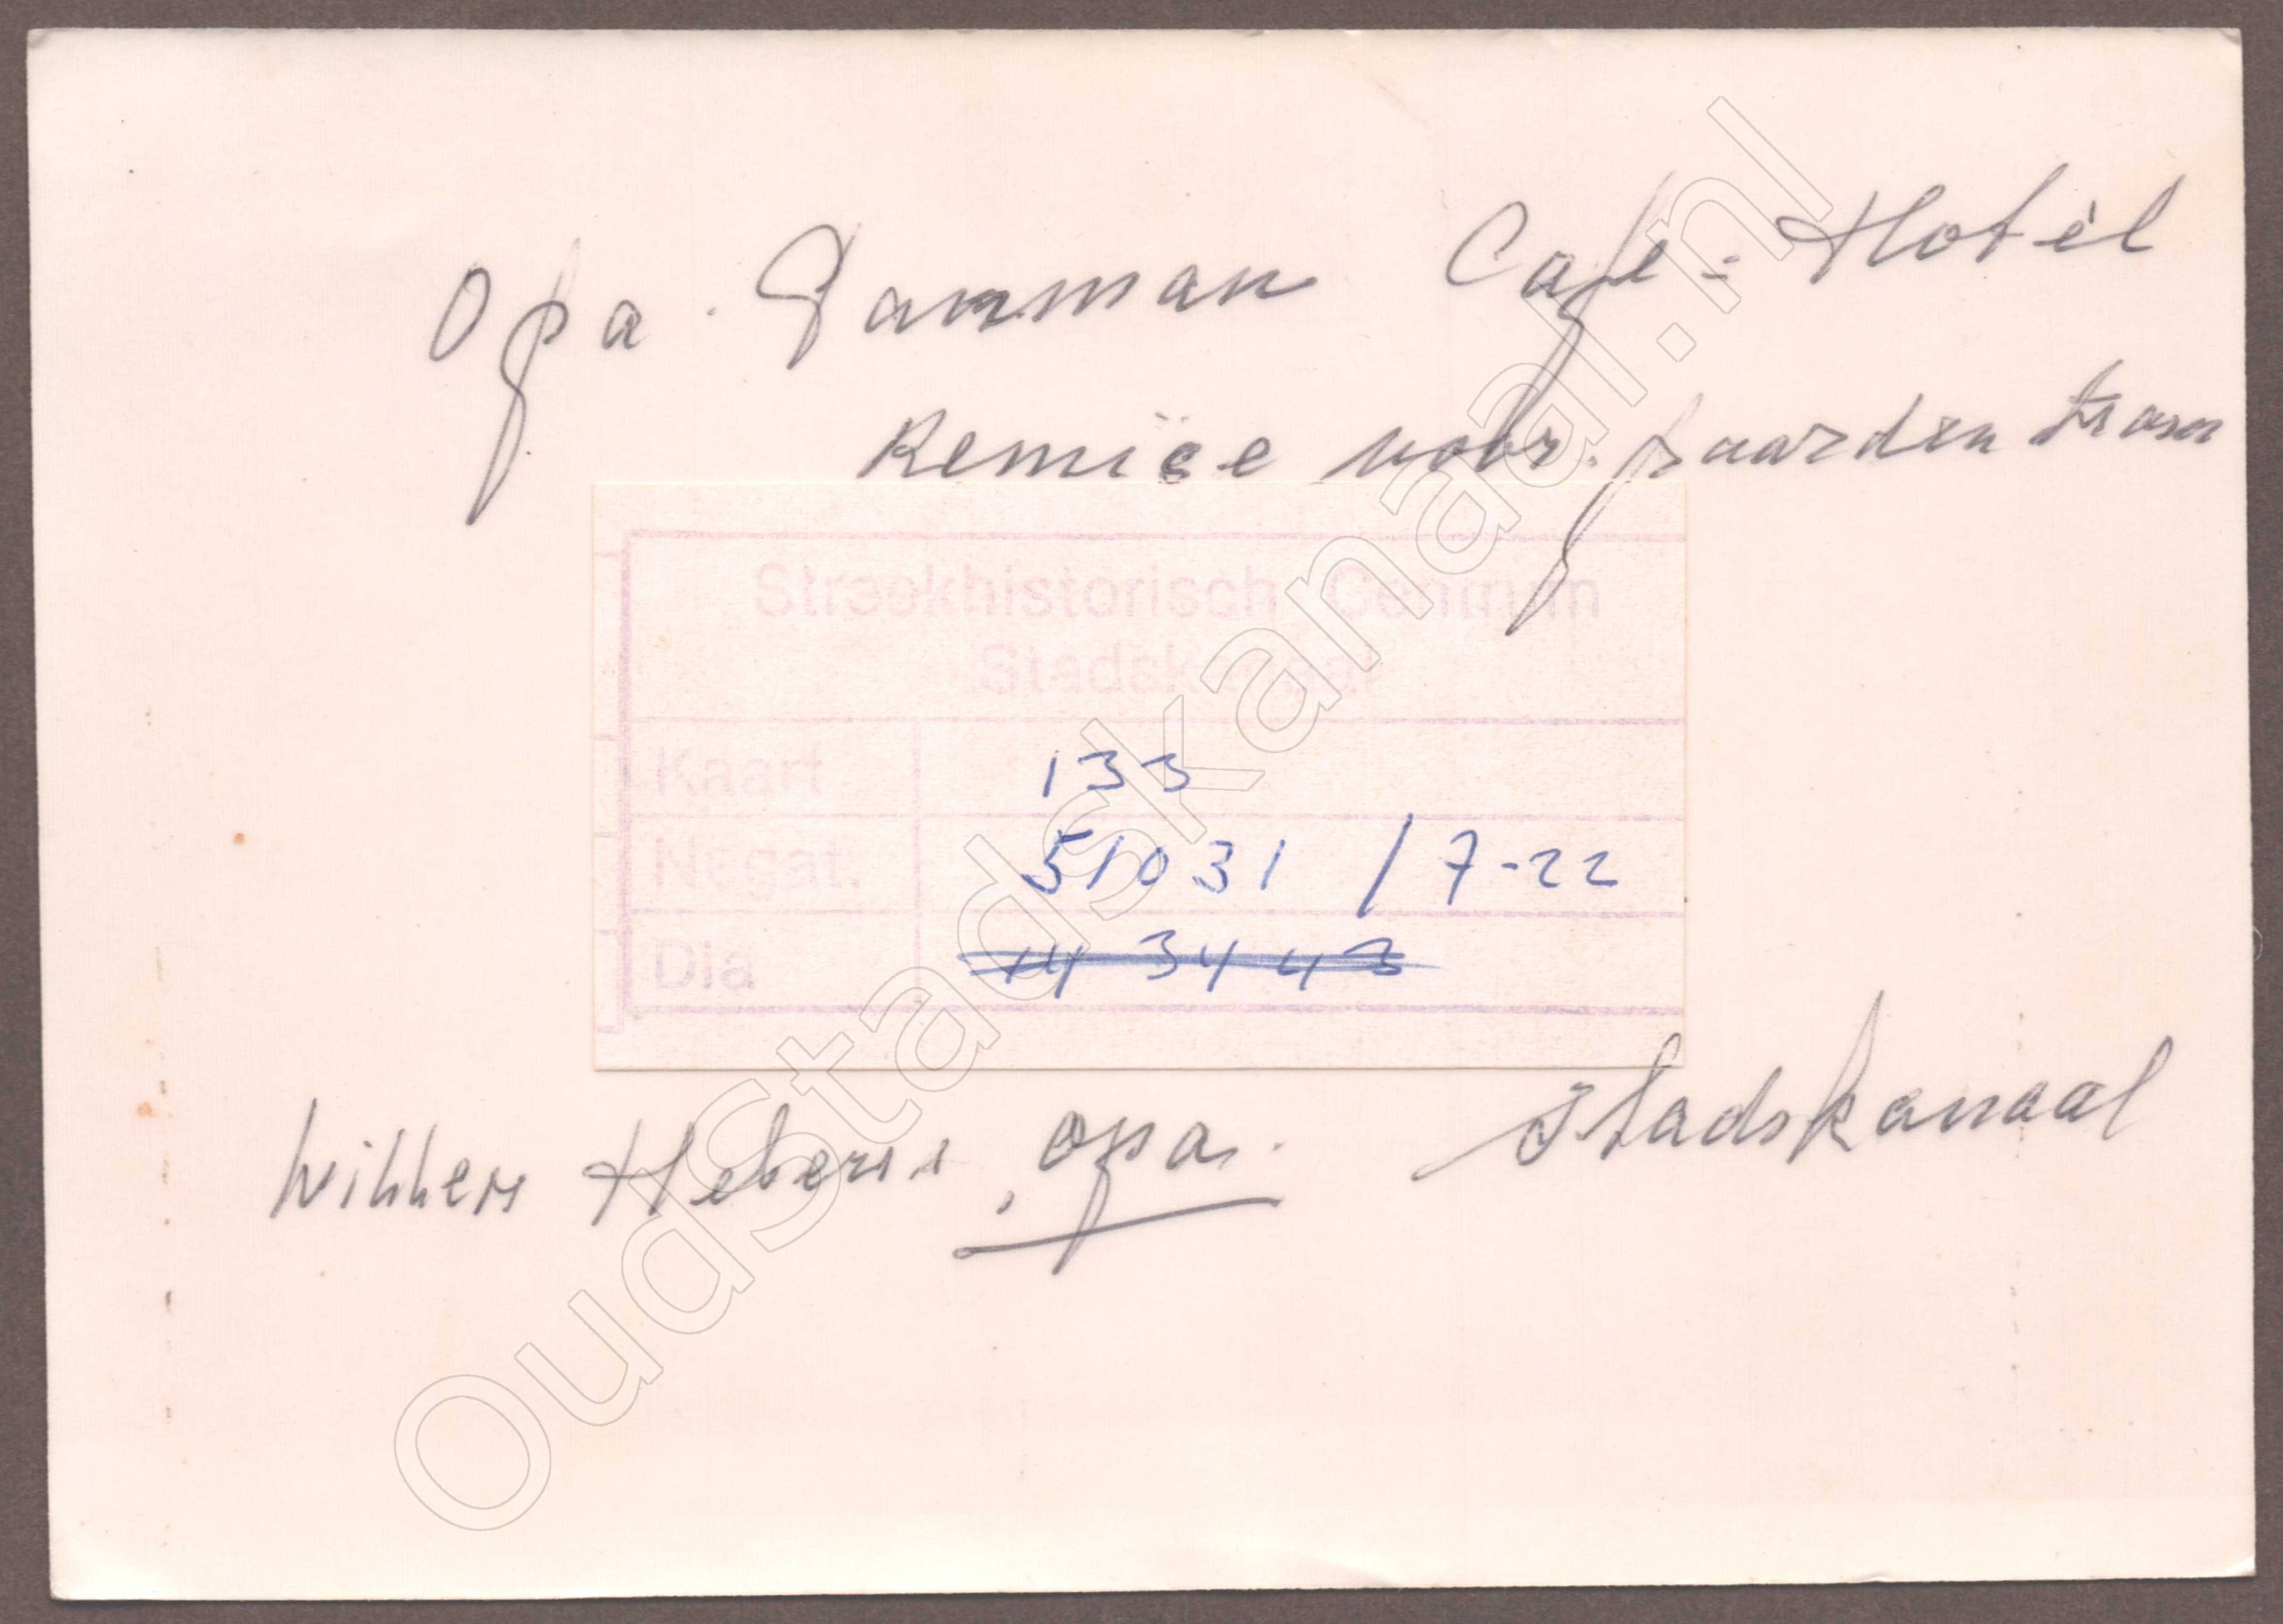 Opa. Panman Cafe-Hotèl
Remise voor paarden tram
Streekhistorisch Centrum
Stadskanaal
Kaart 133
Negat. 51031 / 7-22
Dia 14 34 43
Willem opa. Stadskanaal
OudStadskanaal.nl